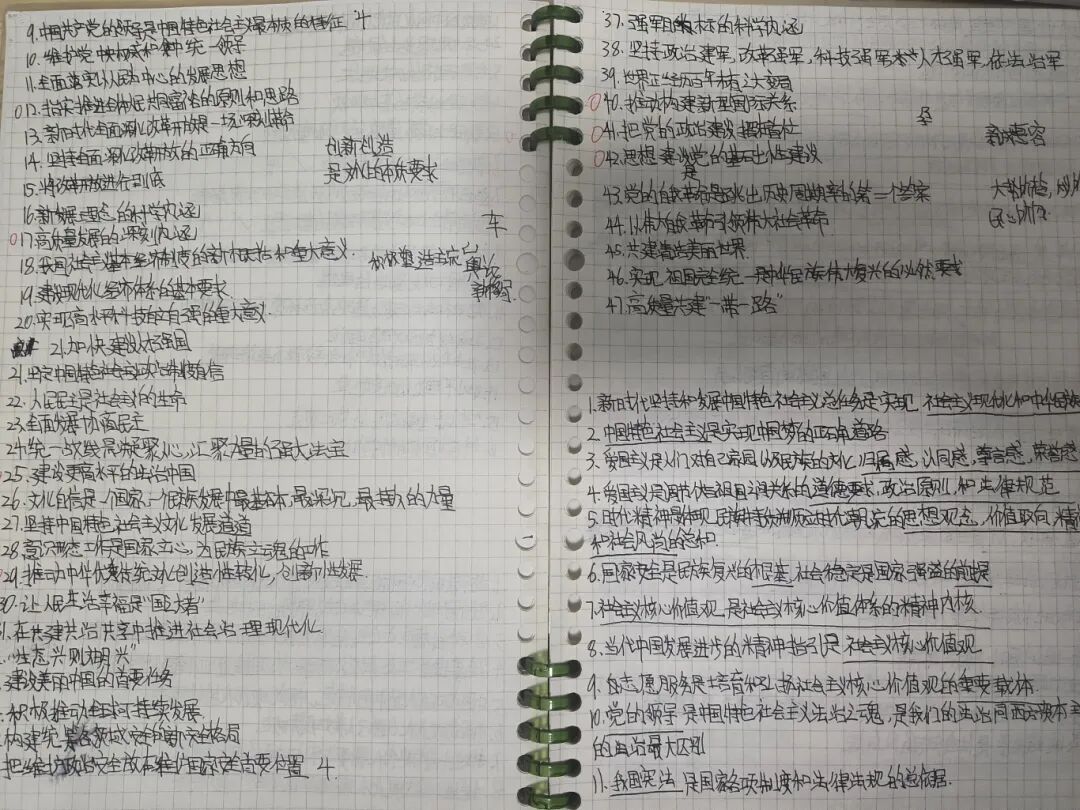 9.中国共产党的领导是中国特色社会主义最本质的特征 4
10.维护党中央权威和集中统一领导
11.全面落实以人民为中心的发展思想
12.扎实推进全体人民共同富裕的原则和思路
13.新时代全面深化改革开放是一场深刻革命
14.坚持全面深化改革开放的正确方向
15.将改革开放进行到底
创新创造
是文化的本质要求
16.新发展理念的科学内涵
17.高质量发展的深刻内涵
车
18.我国社会主义基本经济制度的新概括和重大意义.
19.建设现代化经济体系的基本要求.
20.实现高水平科技自立自强的重大意义.
21.加快建设人才强国
21.坚定中国特色社会主义政治制度自信
22.人民民主是社会主义的生命
23.全面发展协商民主
24.统一战线是凝聚人心,汇聚力量的强大法宝
25.建设更高水平的法治中国
26.文化自信是一个国家,一个民族发展中最基本,最深沉,最持久的力量
27.坚持中国特色社会主义文化发展道路
28.意识形态工作是国家立心,为民族立魂的工作
29.推动中华优秀传统文化创造性转化,创新性发展.
30.让人民生活幸福是“国之大者”
1.在共建共治共享中推进社会治理现代化
“生态兴则文明兴”
建设美丽中国的首要任务
积极推动全球可持续发展.
构建统筹各领域安全的新安全格局
把维护政治安全放在维护国家安全首要位置 4.
37.强军目标的科学内涵
38.坚持政治建军,改革强军,科技强军,人才强军,依法治军
39.世界正经历百年未有之大变局
40.推动构建新型国际关系
41.把党的政治建设摆在首位
42.思想建设是党的基础性建设
43.党的自我革命是跳出历史周期率的第二个答案
44.以伟大自我革命引领伟大社会革命
45.共建清洁美丽世界.
46.实现祖国完全统一是中华民族伟大复兴的必然要求
47.高质量共建“一带一路”
1.新时代坚持和发展中国特色社会主义总任务是实现 社会主义现代化和中华民族
2.中国特色社会主义是实现中国梦的正确道路
3.爱国主义是人们对自己家园以及民族的文化归属感,认同感,尊严感,荣誉感
4.爱国主义是调节个人与祖国之间关系的道德要求,政治原则,和法律规范
5.时代精神是体现民族特质并顺应时代潮流的思想观念,价值取向,精神
和社会风尚的总和.
6.国家安全是民族复兴的根基,社会稳定是国家强盛的前提
7.社会主义核心价值观,是社会主义核心价值体系的精神内核.
8.当代中国发展进步的精神指引是 社会主义核心价值观.
9.志愿服务是培育和弘扬社会主义核心价值观的重要载体.
10.党的领导是中国特色社会主义法治之魂,是我们的法治同西方资本主
的法治最大区别
11.我国宪法是国家各项制度和法律法规的总依据.